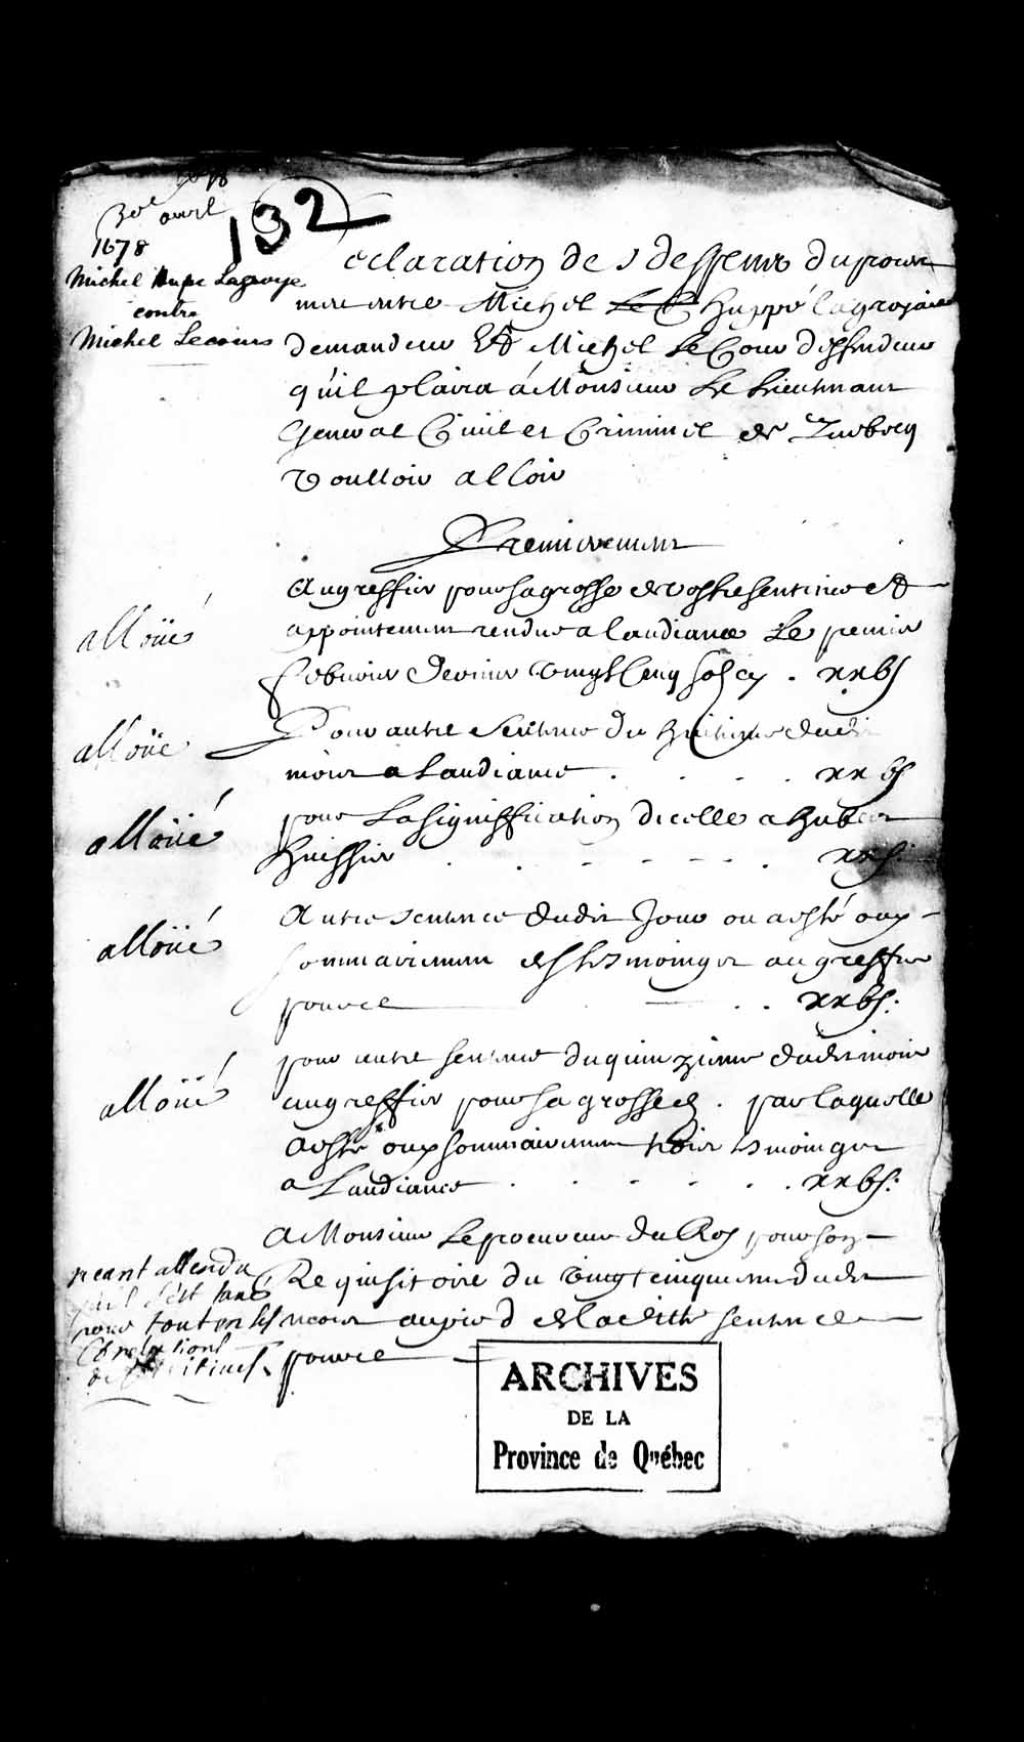 1678
30e avril
132
1678
Michel hupe Lagroye
contre
Michel Lecours
eclaration des despens du pour
mené entre Michel Le C huppé lagrojaie
demandeur Et Michel Le Cour deffendeur
qu'il plaira à Monsieur Le Lieutenant
General Civil et Criminel de Quebecq
Voulloir alloir
Premierement
alloüé
Au greffier pour sa grosse de vostre sentence Et
appointement rendue a laudiance Le premier
febvrier dernier vingt Cinq sols cy . xxv s
alloüé
Pour autre sentence du huitieme dudit
mois a Laudiance . . . . xxv s
alloüé
pour La signiffication dicelle a huber
huissier . . - - - . xx s.
alloüé
Autre sentence dudit Jour ou a esté ouy
sommairement des tesmoinger au greffier
pour ce . . xxv s.
alloüé
pour autre sentence du quinzieme dudit mois
au greffier pour sa grosse . par laquelle
a esté ouy sommairement tesmoinger
a Laudiance . . . . . . xxv s.
A Monsieur Le procureur du Roy pour son
Requisitoire du vingt cinquieme dudit
mois au pied de ladite sentence
pour ce
neant attendu
pour tout
ARCHIVES
DE LA
Province de Québec